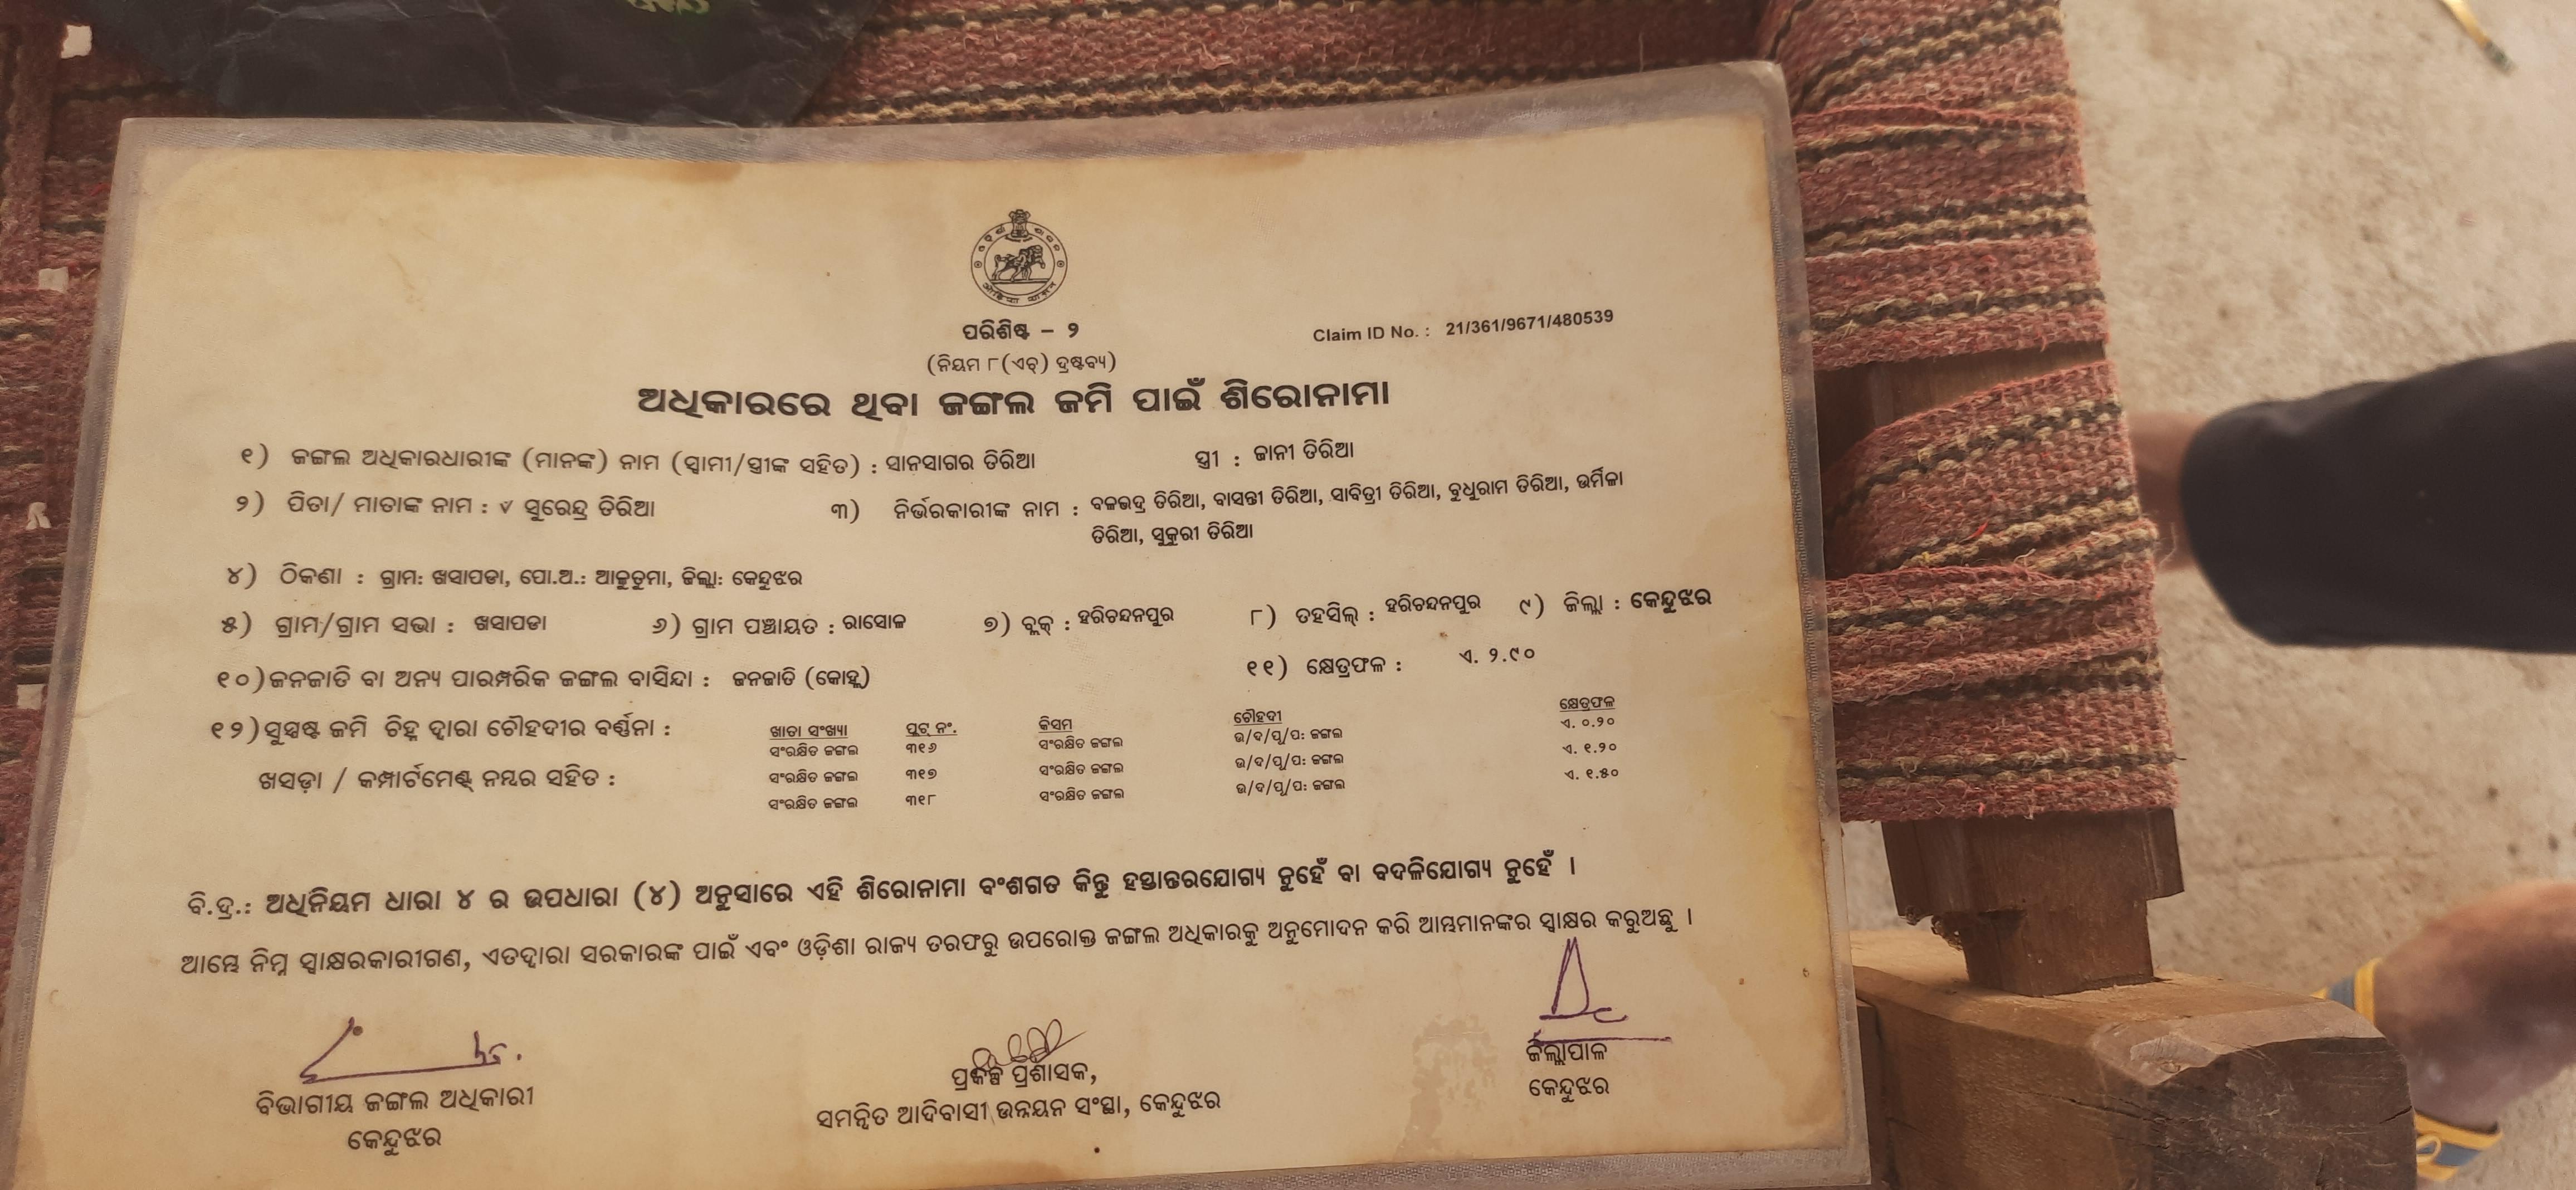 ପରିଶିଷ୍ଟ – ୨
Claim ID No. : 21/361/9671/480539
(ନିୟମ ୮(ଏଚ୍) ଦ୍ରଷ୍ଟବ୍ୟ)
ଅଧିକାରରେ ଥିବା ଜଙ୍ଗଲ ଜମି ପାଇଁ ଶିରୋନାମା
୧) ଜଙ୍ଗଲ ଅଧିକାରଧାରୀଙ୍କ (ମାନଙ୍କ) ନାମ (ସ୍ୱାମୀ/ସ୍ତ୍ରୀଙ୍କ ସହିତ) : ସାନସାଗର ତିରିଆ ସ୍ତ୍ରୀ : ଜାନୀ ତିରିଆ
୨) ପିତା/ ମାତାଙ୍କ ନାମ : ସୁରେନ୍ଦ୍ର ତିରିଆ ୩) ନିର୍ଭରକାରୀଙ୍କ ନାମ : ବଳଭଦ୍ର ତିରିଆ, ବାସନ୍ତୀ ତିରିଆ, ସାବିତ୍ରୀ ତିରିଆ, ବୁଧୁରାମ ତିରିଆ, ଉର୍ମିଳା
ତିରିଆ, ସୁକୁରୀ ତିରିଆ
୪) ଠିକଣା : ଗ୍ରାମ: ଖସାପଡା, ପୋ.ଅ.: ଆଳୁତୁମା, ଜିଲ୍ଲା: କେନ୍ଦୁଝର
୫) ଗ୍ରାମ/ଗ୍ରାମ ସଭା : ଖସାପଡା ୬) ଗ୍ରାମ ପଞ୍ଚାୟତ : ରାସୋଳ ୭) ବ୍ଲକ୍ : ହରିଚନ୍ଦନପୁର ୮) ତହସିଲ୍ : ହରିଚନ୍ଦନପୁର ୯) ଜିଲ୍ଲା : କେନ୍ଦୁଝର
୧୦) ଜନଜାତି ବା ଅନ୍ୟ ପାରମ୍ପରିକ ଜଙ୍ଗଲ ବାସିନ୍ଦା : ଜନଜାତି (କୋହ୍ଲ) ୧୧) କ୍ଷେତ୍ରଫଳ : ଏ. ୨.୯୦
୧୨) ସୁସ୍ପଷ୍ଟ ଜମି ଚିହ୍ନ ଦ୍ୱାରା ଚୌହଦୀର ବର୍ଣ୍ଣନା : ଖାତା ସଂଖ୍ୟା ପ୍ଲଟ୍ ନଂ. କିସମ ଚୌହଦୀ କ୍ଷେତ୍ରଫଳ
ସଂରକ୍ଷିତ ଜଙ୍ଗଲ ୩୧୬ ସଂରକ୍ଷିତ ଜଙ୍ଗଲ ଉ/ଦ/ପୂ/ପ: ଜଙ୍ଗଲ ଏ. ୦.୨୦
ଖସଡ଼ା / କମ୍ପାର୍ଟମେଣ୍ଟ୍ ନମ୍ବର ସହିତ : ସଂରକ୍ଷିତ ଜଙ୍ଗଲ ୩୧୭ ସଂରକ୍ଷିତ ଜଙ୍ଗଲ ଉ/ଦ/ପୂ/ପ: ଜଙ୍ଗଲ ଏ. ୧.୨୦
ସଂରକ୍ଷିତ ଜଙ୍ଗଲ ୩୧୮ ସଂରକ୍ଷିତ ଜଙ୍ଗଲ ଉ/ଦ/ପୂ/ପ: ଜଙ୍ଗଲ ଏ. ୧.୫୦
ବି.ଦ୍ର.: ଅଧିନିୟମ ଧାରା ୪ ର ଉପଧାରା (୪) ଅନୁସାରେ ଏହି ଶିରୋନାମା ବଂଶଗତ କିନ୍ତୁ ହସ୍ତାନ୍ତରଯୋଗ୍ୟ ନୁହେଁ ବା ବଦଳିଯୋଗ୍ୟ ନୁହେଁ ।
ଆମ୍ଭେ ନିମ୍ନ ସ୍ୱାକ୍ଷରକାରୀଗଣ, ଏତଦ୍ୱାରା ସରକାରଙ୍କ ପାଇଁ ଏବଂ ଓଡ଼ିଶା ରାଜ୍ୟ ତରଫରୁ ଉପରୋକ୍ତ ଜଙ୍ଗଲ ଅଧିକାରକୁ ଅନୁମୋଦନ କରି ଆମ୍ଭମାନଙ୍କର ସ୍ୱାକ୍ଷର କରୁଅଛୁ ।
ବିଭାଗୀୟ ଜଙ୍ଗଲ ଅଧିକାରୀ
କେନ୍ଦୁଝର
ପ୍ରକଳ୍ପ ପ୍ରଶାସକ,
ସମନ୍ୱିତ ଆଦିବାସୀ ଉନ୍ନୟନ ସଂସ୍ଥା, କେନ୍ଦୁଝର
ଜିଲ୍ଲାପାଳ
କେନ୍ଦୁଝର